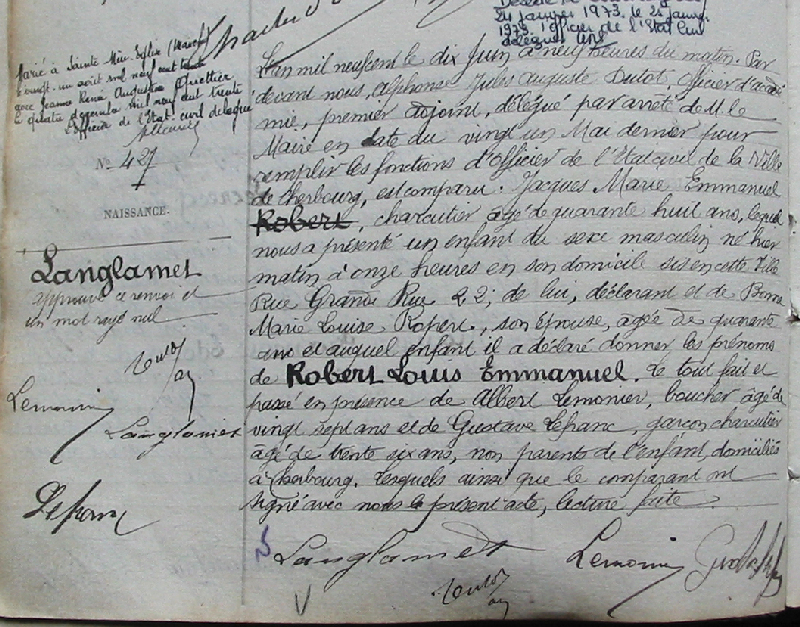 24 janvier 1973. le 25 janv.
1973. l'officier de l'Etat Civil
délégué
Marié à Sainte Mère Eglise (Manche)
le vingt un août mil neuf cent trente
avec Jeanne Renée Augustine
le quatre décembre mil neuf cent trente
L'officier de l'Etat civil délégué
No 427
NAISSANCE.
Langlamet
approuvé ce renvoi et
un mot rayé nul
Lemonier
Langlamet
Lefranc
L'an mil neuf cent le dix Juin à neuf heures du matin. Par
devant nous, Alphonse Jules Auguste Dutot, officier d'acadé
mie, premier adjoint, délégué par arrêté de M. le
Maire en date du vingt un Mai dernier pour
remplir les fonctions d'officier de l'Etat civil de la Ville
de Cherbourg, est comparu. Jacques Marie Emmanuel
Robert, charcutier âgé de quarante huit ans, lequel
nous a présenté un enfant du sexe masculin né hier
matin à onze heures en son domicile sis en cette Ville
Rue Grande Rue 22; de lui, déclarant et de Bonne
Marie Louise Ropert, son épouse, âgée de quarante
ans et auquel enfant il a déclaré donner les prénoms
de Robert Louis Emmanuel. Le tout fait et
passé en présence de Albert Lemonier, boucher âgé de
vingt sept ans et de Gustave Lefranc, garçon charcutier
âgé de trente six ans, non parents de l'enfant, domiciliés
à Cherbourg. Lesquels ainsi que le comparant ont
signé avec nous le présent acte, lecture faite
Langlamet
Lemonier